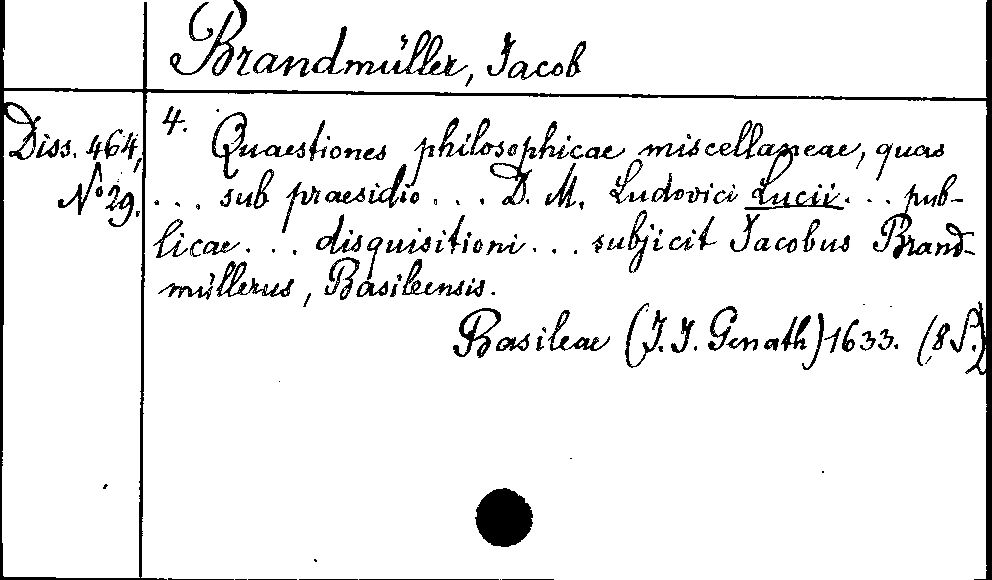 Brandmüller, Jacob
Diss. 464,
No 29.
4. Quaestiones philosophicae miscellaneae, quas
... sub praesidio ... D. M. Ludovici Lucii ... pub-
licae ... disquisitioni ... subjicit Jacobus Brand-
müllerus, Basileensis.
Basileae (J. J. Genath) 1633. (8 S.)